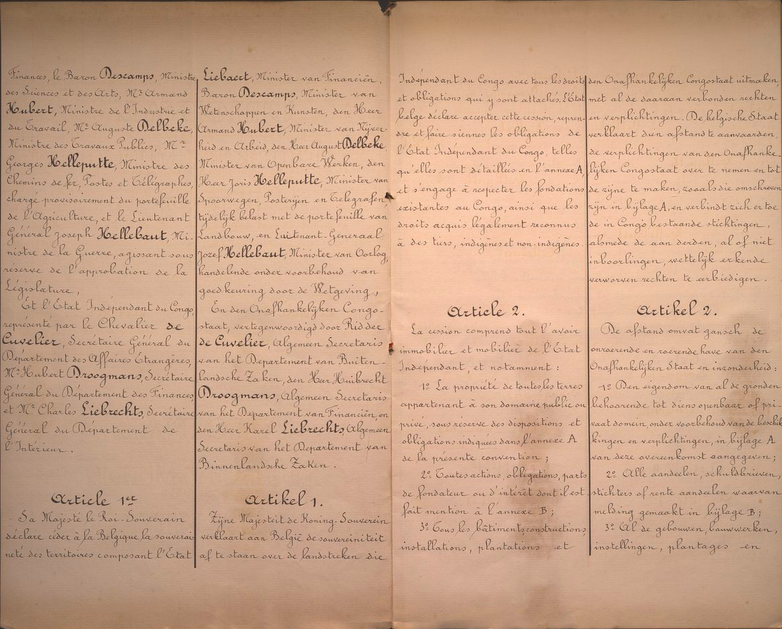 Finances, le Baron Descamps, Ministre
des Sciences et des Arts, Mr Armand
Hubert, Ministre de l'Industrie et
du Travail, Mr Auguste Delbeke,
Ministre des Travaux Publics, Mr
Georges Helleputte, Ministre des
Chemins de fer, Postes et Télégraphes,
chargé provisoirement du portefeuille
de l'Agriculture, et le Lieutenant
Général Joseph Hellebaut, Mi-
nistre de la Guerre, agissant sous
réserve de l'approbation de la
Législature,
Et l'Etat Indépendant du Congo,
représenté par le Chevalier de
Cuvelier, Secrétaire Général du
Département des Affaires Etrangères,
Mr Hubert Droogmans, Secrétaire
Général du Département des Finances
et Mr Charles Liebrechts, Secrétaire
Général du Département de
l'Intérieur.
Article 1er
Sa Majesté le Roi-Souverain
déclare céder à la Belgique la souverai-
neté des territoires composant l'Etat
Liebaert, Minister van Financiën,
Baron Descamps, Minister van
Wetenschappen en Kunsten, den Heer
Armand Hubert, Minister van Nijver-
heid en Arbeid, den Heer August Delbeke
Minister van Openbare Werken, den
Heer Joris Helleputte, Minister van
Spoorwegen, Posterijen en Telegrafen,
tijdelijk belast met de portefeuille van
Landbouw, en Luitenant-Generaal
Jozef Hellebaut, Minister van Oorlog,
handelende onder voorbehoud van
goedkeuring door de Wetgeving,
En den Onafhankelijken Congo-
staat, vertegenwoordigd door Ridder
de Cuvelier, Algemeen Secretaris
van het Departement van Buiten-
landsche Zaken, den Heer Huibrecht
Droogmans, Algemeen Secretaris
van het Departement van Financiën, en
den Heer Karel Liebrechts, Algemeen
Secretaris van het Departement van
Binnenlandsche Zaken.
Artikel 1.
Zijne Majesteit de Koning-Souverein
verklaart aan België de souvereiniteit
af te staan over de landstreken die
Indépendant du Congo avec tous les droits
et obligations qui y sont attachés. l'Etat
belge déclare accepter cette cession, repren-
dre et faire siennes les obligations de
l'Etat Indépendant du Congo, telles
qu'elles sont détaillées en l'annexe A,
et s'engage à respecter les fondations
existantes au Congo, ainsi que les
droits acquis légalement reconnus
à des tiers, indigènes et non-indigènes.
Article 2.
La cession comprend tout l'avoir
immobilier et mobilier de l'Etat
Indépendant, et notamment :
1° La propriété de toutes les terres
appartenant à son domaine public ou
privé, sous réserve des dispositions et
obligations indiquées dans l'annexe A
de la présente convention ;
2° Toutes actions, obligations, parts
de fondateur ou d'intérêt dont il est
fait mention à l'annexe B ;
3° Tous les bâtiments, constructions,
installations, plantations et
den Onafhankelijken Congostaat uitmaken
met al de daaraan verbonden rechten
en verplichtingen. De belgische Staat
verklaart dien afstand te aanvaarden
de verplichtingen van den Onafhanke-
lijken Congostaat over te nemen en tot
de zijne te maken, zooals die omschreven
zijn in bijlage A, en verbindt zich er toe
de in Congo bestaande stichtingen,
alsmede de aan derden, al of niet
inboorlingen, wettelijk erkende
verworven rechten te eerbiedigen.
Artikel 2.
De afstand omvat gansch de
onroerende en roerende have van den
Onafhankelijken Staat en inzonderheid :
1° Den eigendom van al de gronden
behoorende tot diens openbaar of pri-
vaat domein onder voorbehoud van de beschik-
kingen en verplichtingen, in bijlage A
van deze overeenkomst aangegeven ;
2° Alle aandeelen, schuldbrieven,
stichters of rente aandeelen waarvan
melding gemaakt in bijlage B ;
3° Al de gebouwen, bouwwerken,
instellingen, plantages en